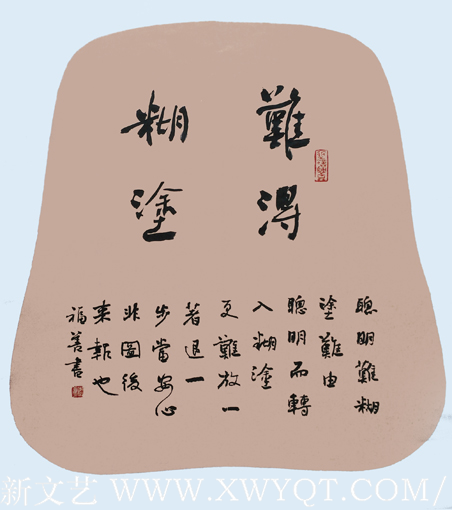 難得
糊塗
聰明難糊
塗難由
聰明而轉
入糊塗
更難放一
著退一
步當安心
非圖後
來報也
福善書
新文艺 WWW.XWYQT.COM/